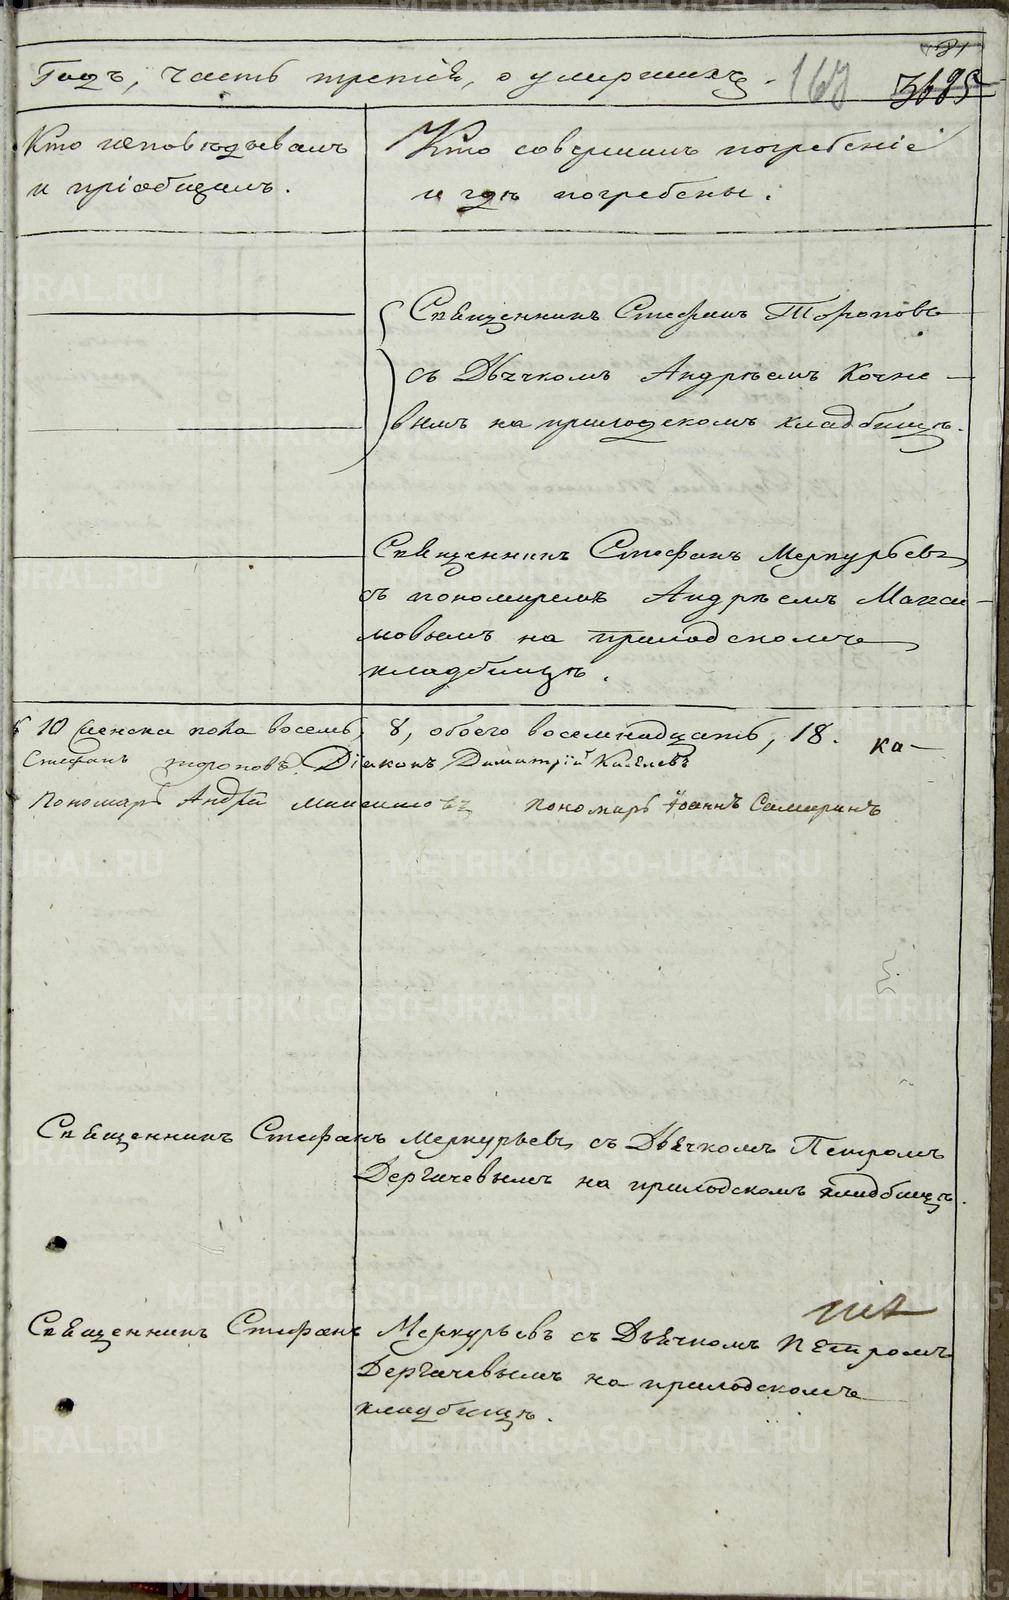 Годъ, часть третія, о умершихъ.
Кто исповѣдывалъ
и пріобщалъ.
Кто совершалъ погребеніе
и гдѣ погребены.
Священникъ Стефанъ Тороповъ
съ Дьячкомъ Андрѣемъ Кочне-
вымъ на приходскомъ кладбищѣ.
Священникъ Стефанъ Меркурьевъ
съ пономаремъ Андрѣемъ Макси-
мовымъ на приходскомъ
кладбищѣ.
10 женска пола восемь, 8, обоего восемнадцать, 18. ка-
Стефанъ Тороповъ. Діаконъ Димитрій
Пономарь Андрей Максимовъ пономарь Іоаннъ Самаринъ
Священникъ Стефанъ Меркурьевъ съ Дьячкомъ Петромъ
Дергачевымъ на приходскомъ кладбищѣ.
Священникъ Стефанъ Меркурьевъ съ Дьячкомъ Петромъ
Дергачевымъ на приходскомъ
кладбищѣ.
METRIKI.GASO-URAL.RU